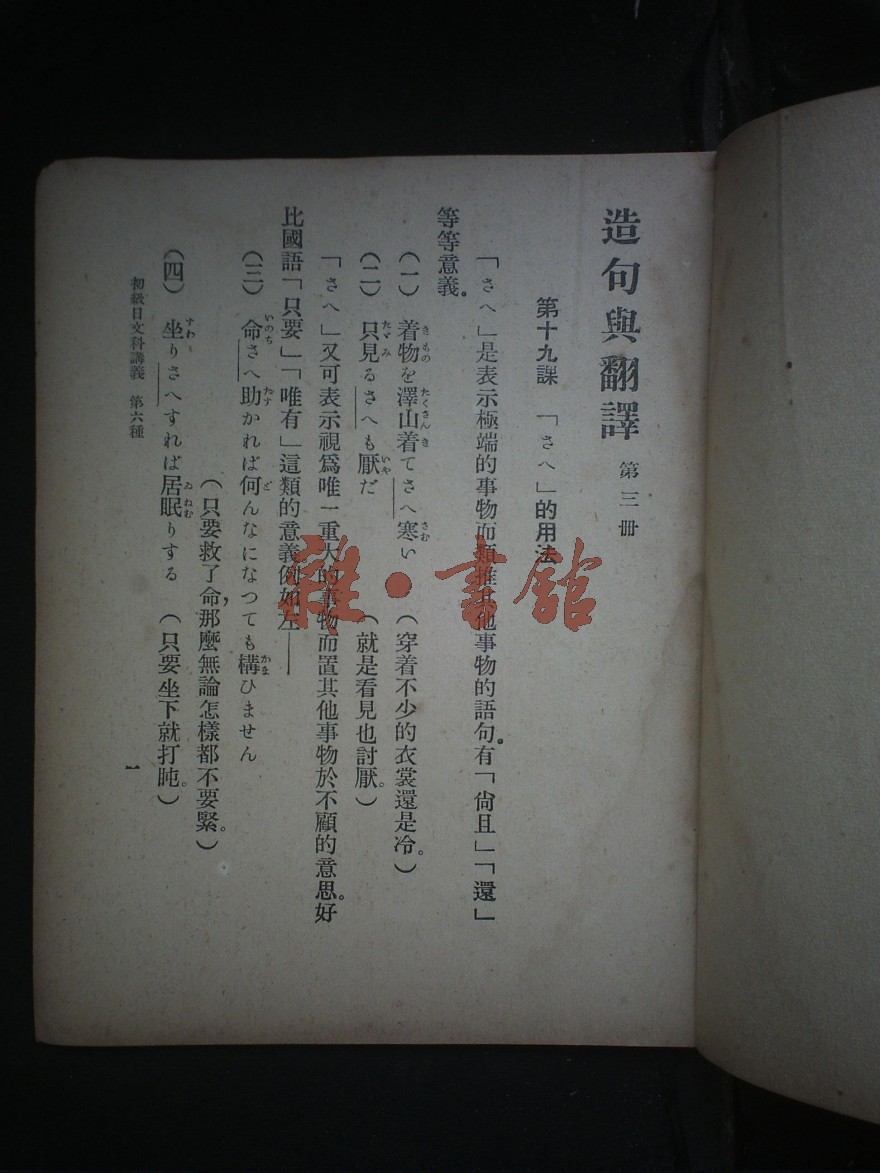 造句與翻譯 第三冊
第十九課 「さへ」的用法
「さへ」是表示極端的事物而類推其他事物的語句。有「尙且」「還」
等等意義。
(一) 着物を澤山着てさへ寒い (穿着不少的衣裳還是冷。)
きもの たくさんき さむ
(二) 只見るさへも厭だ (就是看見也討厭。)
たゞみ いや
「さへ」又可表示視爲唯一重大的事物而置其他事物於不顧的意思。好
比國語「只要」「唯有」這類的意義例如左——
(三) 命さへ助かれば何んなになつても構ひません
いのち たす ど かま
(只要救了命,那麼無論怎樣都不要緊。)
(四) 坐りさへすれば居眠りする (只要坐下就打盹。)
すわ ゐねむ
初級日文科講義 第六種
一
雜·書館